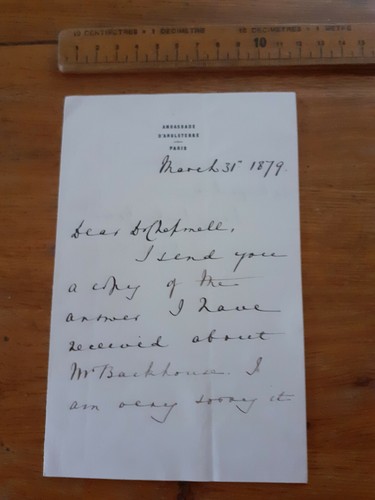 10 CENTIMETRES = 1 DECIMETRE 10 DECIMETRES = 1 METRE
1 2 3 4 5 6 7 8 9 10 11 12 13 14 15
AMBASSADE
D'ANGLETERRE
PARIS
March 31st 1879.
Dear Dr Chepmell,
I send you
a copy of the
answer I have
received about
Mr Backhouse. I
am very sorry it